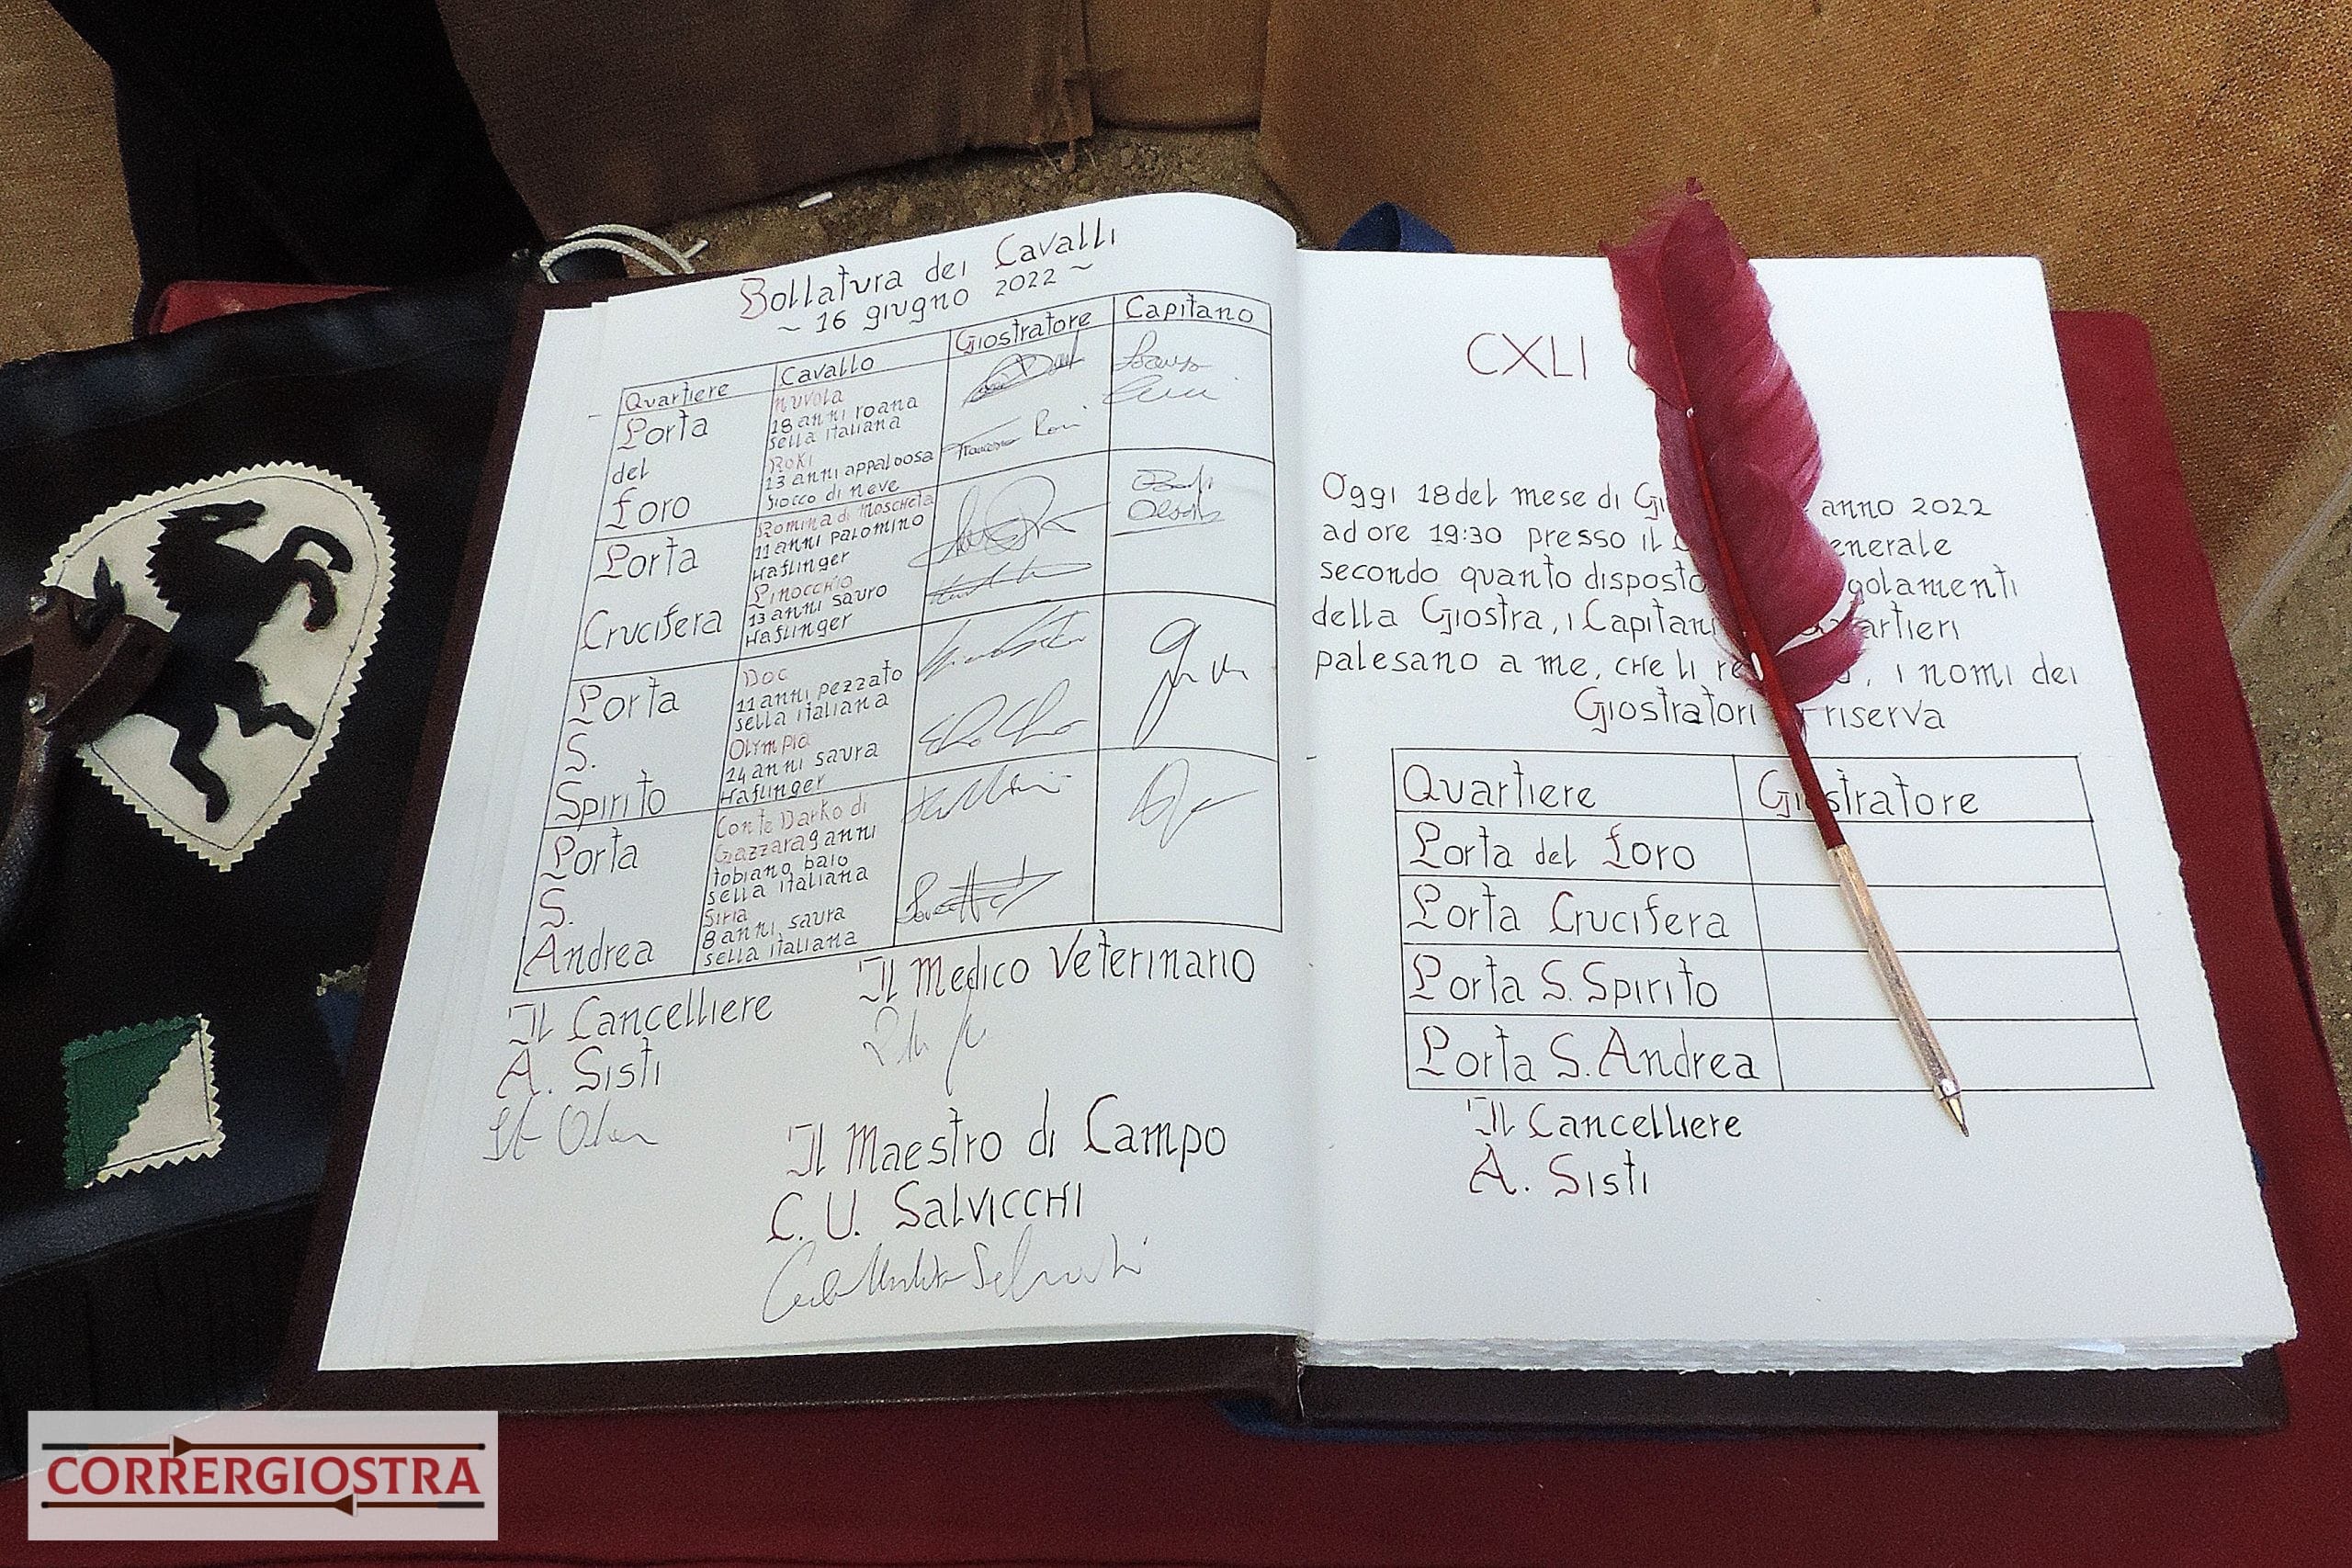 Bollatura dei Cavalli
~ 16 giugno 2022 ~
Quartiere Cavallo Giostratore Capitano
Porta
del
Foro
Nuvola
18 anni roana
sella italiana
Roki
13 anni appaloosa
fiocco di neve
Francesco Rossi
Porta
Crucifera
Romina di Moscheta
11 anni palomino
Haflinger
Pinocchio
13 anni sauro
Haflinger
Porta
S.
Spirito
Doc
11 anni pezzato
sella italiana
Olympia
14 anni saura
Haflinger
Porta
S.
Andrea
Conte Darko di
Gazzara 9 anni
tobiano baio
sella italiana
Siria
8 anni, saura
sella italiana
Il Cancelliere
A. Sisti
Il Medico Veterinario
Il Maestro di Campo
C. U. Salvicchi
CXLI
Oggi 18 del mese di Gi anno 2022
ad ore 19:30 presso il enerale
secondo quanto disposto golamenti
della Giostra, i Capitani artieri
palesano a me, che li re , i nomi dei
Giostratori riserva
Quartiere Giostratore
Porta del Foro
Porta Crucifera
Porta S. Spirito
Porta S. Andrea
Il Cancelliere
A. Sisti
CORRERGIOSTRA